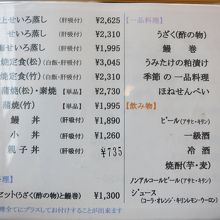 上せいろ蒸し(肝吸付) ¥2,625
せいろ蒸し(肝吸付) ¥1,995
焼定食(松)(白飯・肝吸付) ¥2,310
焼定食(竹)(白飯・肝吸付)
蒲焼(松・素焼)(単品)
蒲焼(竹)(単品) ¥1,730
鰻丼(肝吸付) ¥1,890
小丼(肝吸付) ¥1,260
親子丼 ¥735
料理】
ピット(うざく(酢の物)と鰻巻) ¥1,300
【一品料理】
うざく(酢の物)
鰻巻
うみたけの粕漬け
季節の一品料理
ほねせんべい
【飲み物】
ビール(アサヒ・キリン)
一級酒
冷酒
焼酎(芋・麦)
ノンアルコールビール(アサヒ・キリン)
ジュース
(コーラ・キリンオレンジ・キリンレモン・ウーロン)